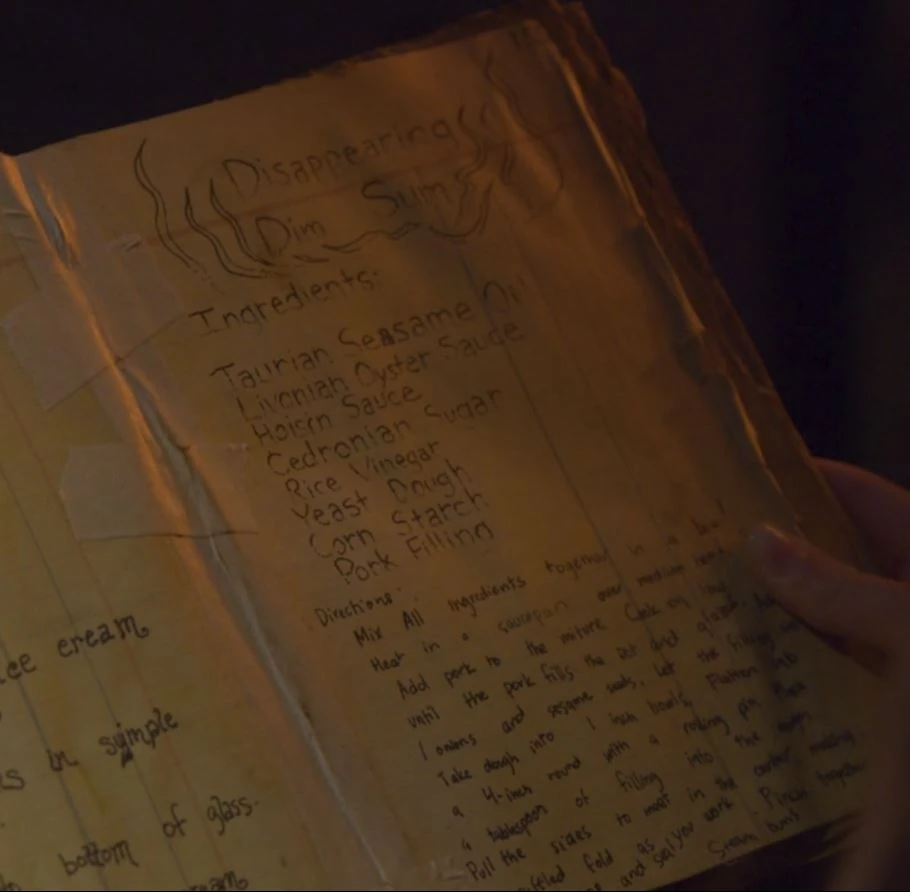 cream
in simple
bottom of glass.
Disappearing
Dim Sum
Ingredients:
Taurian Seasame Oil
Livonian Oyster Sauce
Hoisin Sauce
Cedronian Sugar
Rice Vinegar
Yeast Dough
Corn Starch
Pork Filling
Directions:
Mix All ingredients together in a bowl
Heat in a saucepan over medium heat
Add pork to the mixture. Cook on low
until the pork fills the air and glaze,
onions and sesame seeds. Let the filling
Take dough into 1 inch bowls, Flatten into
a 4-inch round with a rolling pin. Place
a tablespoon of filling into the
Pull the sides to meat in the center making
fold as you work Pinch together
and seal Steam buns